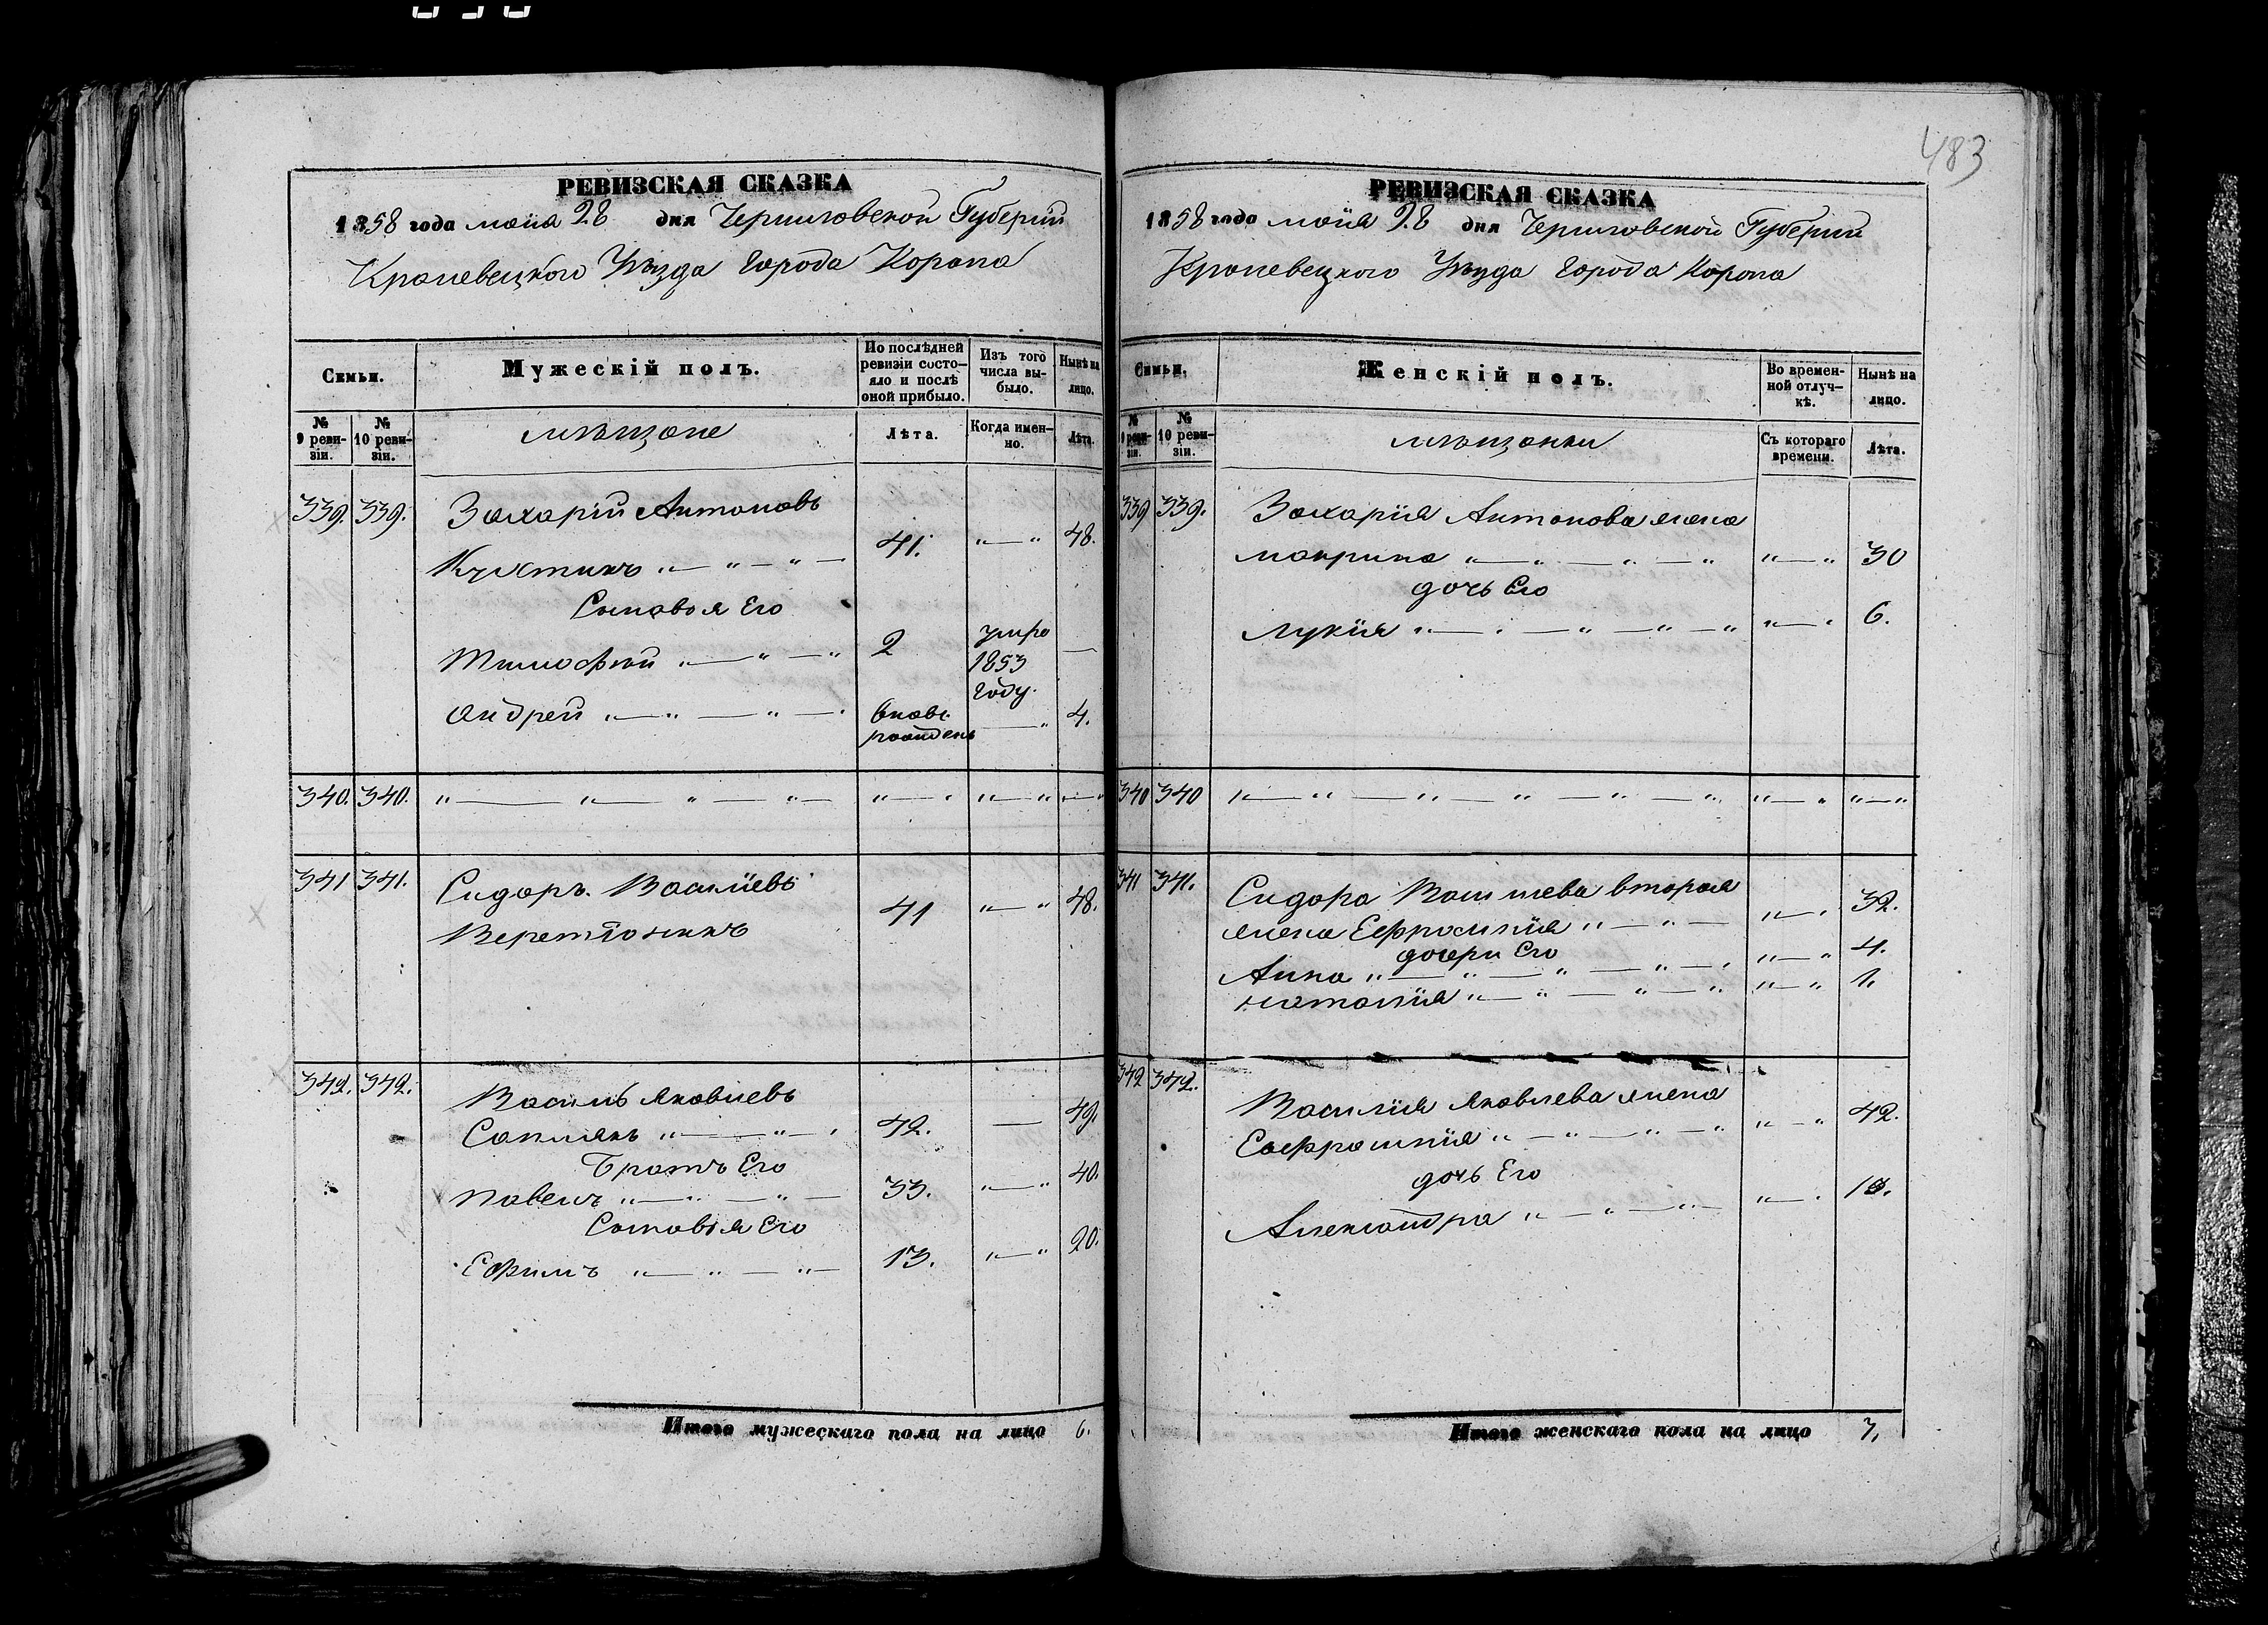 483
РЕВИЗСКАЯ СКАЗКА
1858 года мая 28 дня Черниговской Губерніи
Кролевецкого Уѣзда Города Коропа
Семьи.
Мужескій полъ.
По послѣдней ревизіи состо-
яло и послѣ оной прибыло.
Изъ того числа вы-
было.
Нынѣ на лицо.
№ 9 реви-
зіи.
№ 10 реви-
зіи.
мѣщане
Лѣта.
Когда имен-
но.
Лѣта.
339. 339. Захарій Антоновъ
41. „ — „ 48.
Сыновья Его
Тимофѣй „ — „ — „ 2 умре 1853 году. —
Андрей „ — „ — „ — „ вновь рожденъ — „ 4.
340. 340. „ — „ — „ — „ — „ — „ „ — „ „ — „
341 341. Сидоръ Василіевъ
41 „ — „ 48.
342. 342. Василь Яковлевъ
„ — „ — „ 42. — 49.
Братъ Его
Павелъ „ — „ — „ — 33. „ — „ 40.
Сыновья Его
Ефимъ „ — „ — „ — 13. „ — „ 20.
Итого мужескаго пола на лицо 6.
РЕВИЗСКАЯ СКАЗКА
1858 года мая 28 дня Черниговской Губерніи
Кролевецкого Уѣзда Города Коропа
Семьи.
Женскій полъ.
Во времен-
ной отлуч-
кѣ.
Нынѣ на лицо.
№ 9 реви-
зіи.
№ 10 реви-
зіи.
мѣщанки
Съ котораго времени.
Лѣта.
339 339. Захарія Антонова жена
Маврина „ — „ — „ — „ „ — „ 30
дочь Его
Лукія „ — „ — „ — „ — „ „ — „ 6.
340 340 „ — „ — „ — „ — „ — „ „ — „ „ — „
341 341. Сидора Василіева вторая
жена Ефросинія „ — „ — „ — „ 32.
дочери Его
Анна „ — „ — „ — „ — „ „ — „ 4.
Наталія „ — „ — „ — „ „ — „ 1.
342 342. Василія Яковлева жена
Ефросинія „ — „ — „ — „ „ — „ 42.
дочь Его
Александра „ — „ — „ — „ — „
Итого женскаго пола на лицо 7.